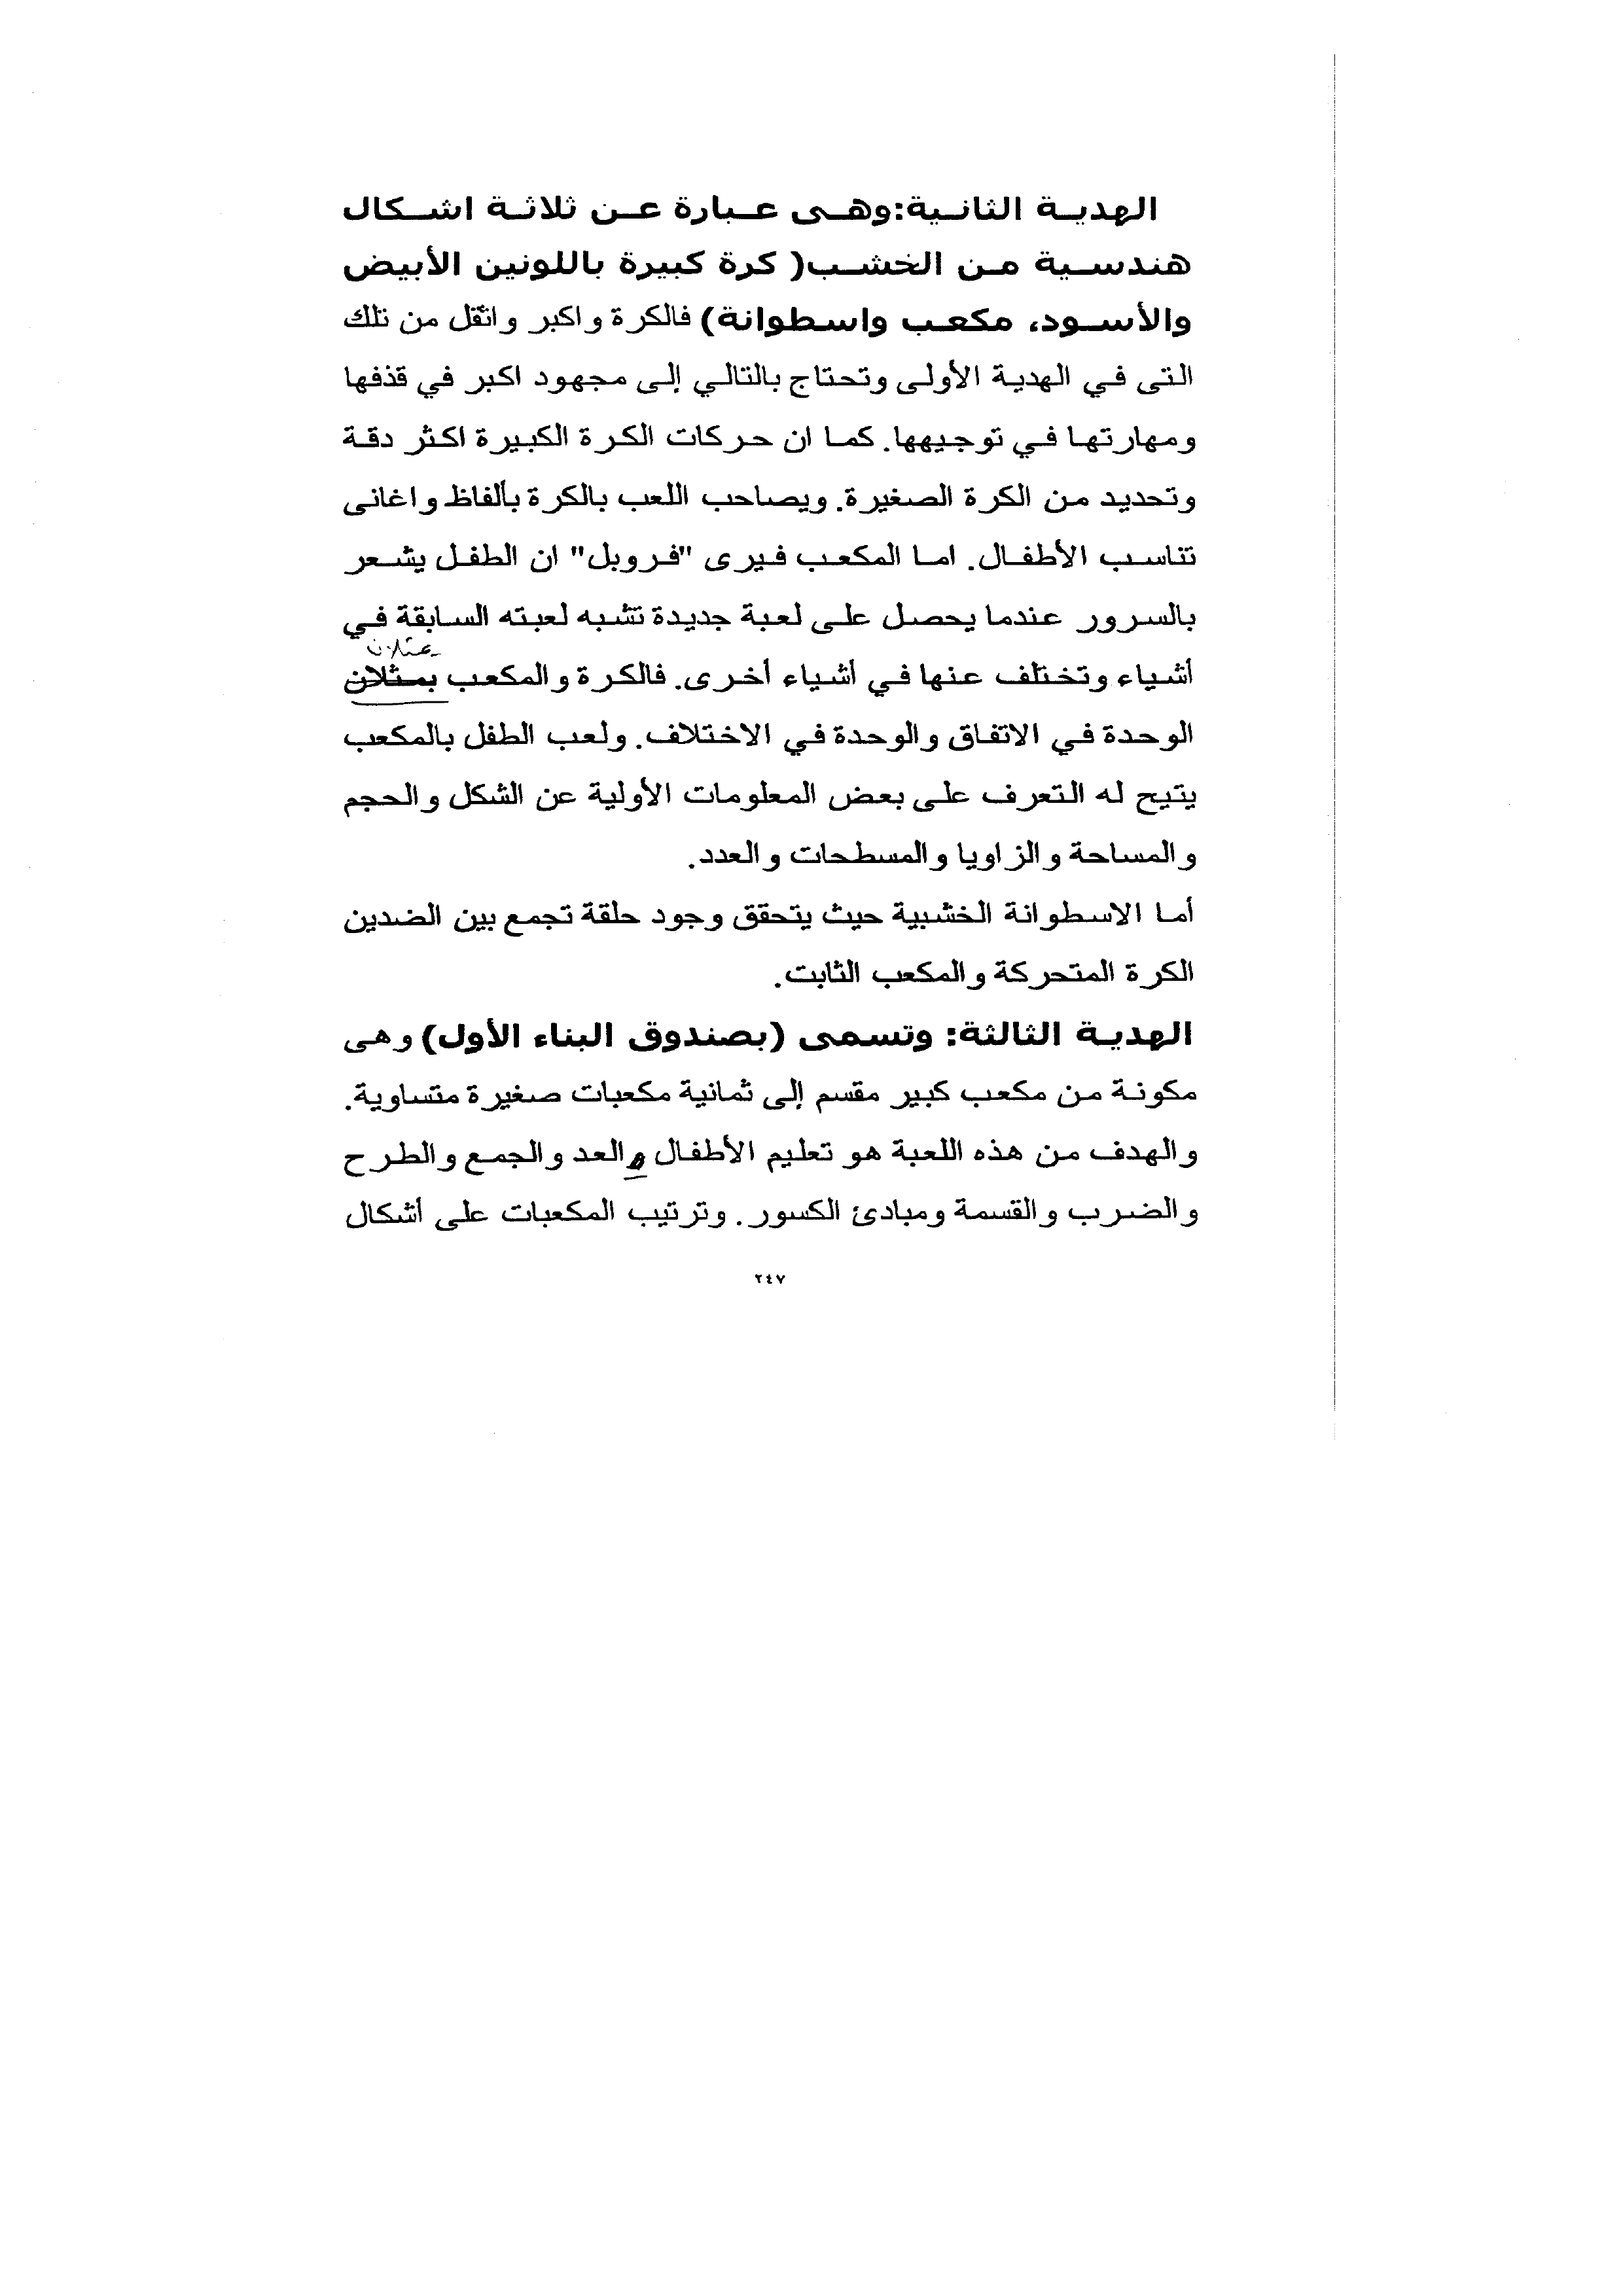 الهدية الثانية:وهى عبارة عن ثلاثة اشكال
هندسية من الخشب( كرة كبيرة باللونين الأبيض
والأسود، مكعب واسطوانة) فالكرة واكبر واثقل من تلك
التى في الهدية الأولى وتحتاج بالتالي إلى مجهود اكبر في قذفها
ومهارتها في توجيهها. كما ان حركات الكرة الكبيرة اكثر دقة
وتحديد من الكرة الصغيرة. ويصاحب اللعب بالكرة بألفاظ واغانى
تناسب الأطفال. اما المكعب فيرى "فروبل" ان الطفل يشعر
بالسرور عندما يحصل على لعبة جديدة تشبه لعبته السابقة في
يمثلان
أشياء وتختلف عنها في أشياء أخرى. فالكرة والمكعب بمثلان
الوحدة في الاتفاق والوحدة في الاختلاف. ولعب الطفل بالمكعب
يتيح له التعرف على بعض المعلومات الأولية عن الشكل والحجم
والمساحة والزاويا والمسطحات والعدد.
أما الاسطوانة الخشبية حيث يتحقق وجود حلقة تجمع بين الضدين
الكرة المتحركة والمكعب الثابت.
الهدية الثالثة: وتسمى (بصندوق البناء الأول) وهى
مكونة من مكعب كبير مقسم إلى ثمانية مكعبات صغيرة متساوية.
والهدف من هذه اللعبة هو تعليم الأطفال والعد والجمع والطرح
والضرب والقسمة ومبادئ الكسور. وترتيب المكعبات على أشكال
٢٤٧